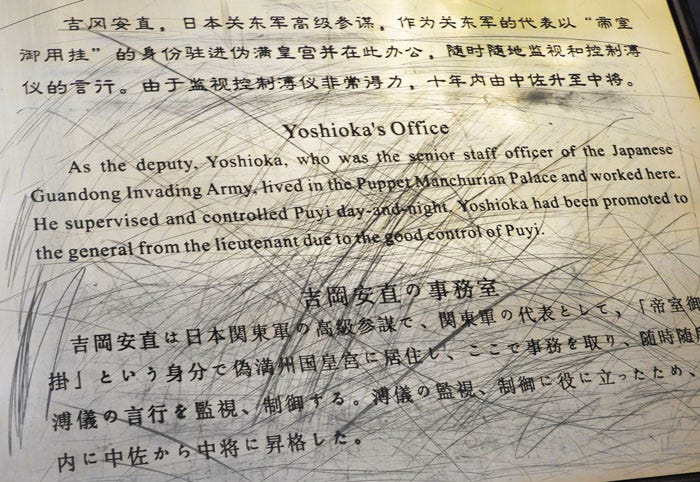 吉冈安直，日本关东军高级参谋，作为关东军的代表以“帝室
御用挂”的身份驻进伪满皇宫并在此办公，随时随地监视和控制溥
仪的言行。由于监视控制溥仪非常得力，十年内由中佐升至中将。
Yoshioka's Office
As the deputy, Yoshioka, who was the senior staff officer of the Japanese
Guandong Invading Army, lived in the Puppet Manchurian Palace and worked here.
He supervised and controlled Puyi day-and-night. Yoshioka had been promoted to
the general from the lieutenant due to the good control of Puyi.
吉岡安直の事務室
吉岡安直は日本関東軍の高級参謀で、関東軍の代表として、「帝室御
掛」という身分で偽満州国皇宮に居住し、ここで事務を取り、随時随
溥儀の言行を監視、制御する。溥儀の監視、制御に役に立ったため、
内に中佐から中将に昇格した。